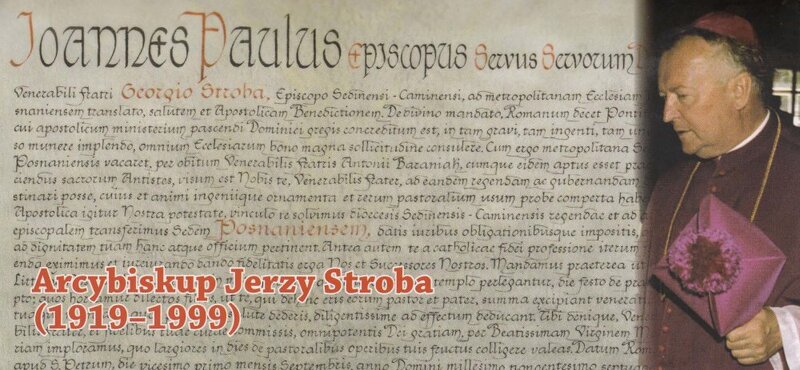 Joannes Paulus Episcopus Servus Servorum D
Venerabili Fratri Georgio Stroba, Episcopo Sedinensi-Caminensi, ad metropolitanam Ecclesiam
snaniensem translato, salutem et Apostolicam Benedictionem. De divino mandato, Romanum decet Ponti
cui apostolicum ministerium pascendi Dominici gregis concreditum est, in tam gravi, tam ingenti, tam un
so munere implendo, omnium Ecclesiarum bono magna sollicitudine consulere. Cum ergo metropolitana Se
Posnaniensis vacaret, per obitum Venerabilis Fratris Antonii Baraniak, cumque eidem aptus esset prae
ciendus sacrorum Antistes, visum est Nobis te, Venerabilis Frater, ad eandem regendam ac gubernandam
stinari posse, cuius et animi ingeniique ornamenta et rerum pastoralium usum probe comperta habe
Apostolica igitur Nostra potestate, vinculo te resolvimus dioecesis Sedinensis-Caminensis regendae et ad a
episcopalem transferimus Sedem Posnaniensem, datis iuribus obligationibusque impositis, q
ad dignitatem tuam hanc atque officium pertinent. Antea autem te a catholicae fidei professione iterum f
enda eximimus et iureiurando dandi fidelitatis erga Nos et Successores Nostros. Mandamus praeterea ut
Litt templo perlegantur, die festo de pra
pto; quos hortamur dilectos filios, ut te, qui deinceps eris eorum pastor et pater, summa excipiant venerat
tu lute dederis, diligentissime ad effectum deducant. Tibi denique, Vene
commissis, omnipotentis Dei gratiam, per Beatissimam Virginem M
riam imploramus, quo largiores in dies de pastoralibus operibus tuis fructus colligere valeas. Datum Rom
apud S. Petrum, die vicesimo primo mensis Septembris, anno Domini millesimo nongentesimo septuag
Arcybiskup Jerzy Stroba
(1919–1999)